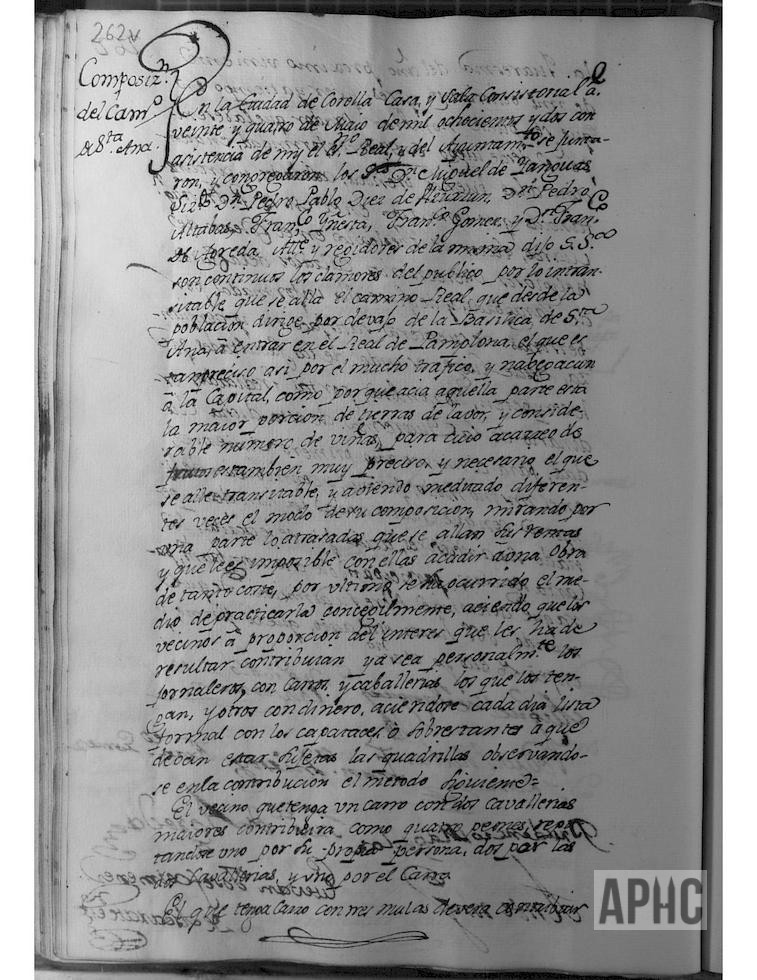 262v
Composiz.n
del Cam.o
de S.ta Ana.
En la Ciudad de Corella Casa, y Sala Consistorial a
veinte y quatro de Maio de mil ochocientos y dos con
asistencia de my el es.no Real, y del Ayuntam.to se junta-
ron, y congregaron los S.res D.n Miguel de Yanguas
D.n Pedro Pablo Diez de D.n Pedro
Altabas, Fran.co Fran.co Gomez, y D.n Fran.co
de Agreda Alc.e y regidores de la misma dijo S.S.
son continuos los clamores del publico por lo intran-
sitable que se alla el camino Real que desde la
poblacion dirige por devajo de la Basilica de S.ta
Ana, a entrar en el Real de Pamplona, el que es
tan preciso asi por el mucho trafico, y nabegacion
a la Capital, como porque acia aquella parte esta
la maior porcion de tierras de lavor, y conside-
rable numero de viñas, para cuio acarreo de
frutos es tambien muy preciso, y necesario el que
se alle transitable, y aviendo meditado diferen-
tes veces el modo de su composicion, mirando por
una parte lo atrasadas que se allan sus rentas
y que les imposible con ellas acudir a una obra
de tanto coste, por ultimo se ha ocurrido el me-
dio de practicarla concegilmente, aciendo que los
vecinos a proporcion del interes que les ha de
resultar contribuian ya sea personalm.te los
jornaleros, con carros, y caballerias los que los ten-
gan, y otros con dinero, aciendose cada dia lista
formal con los capataces o sobrestantes a que
devan estar sujetas las quadrillas observando-
se en la contribucion el metodo siguiente=
El vecino que tenga un carro con dos cavallerias
maiores contribuira como quatro peones repu-
tandose uno por su propia persona, dos por las
dos Cavallerias, y uno por el Carro
El que tenga Carro con tres mulas devera contribuir
APHC